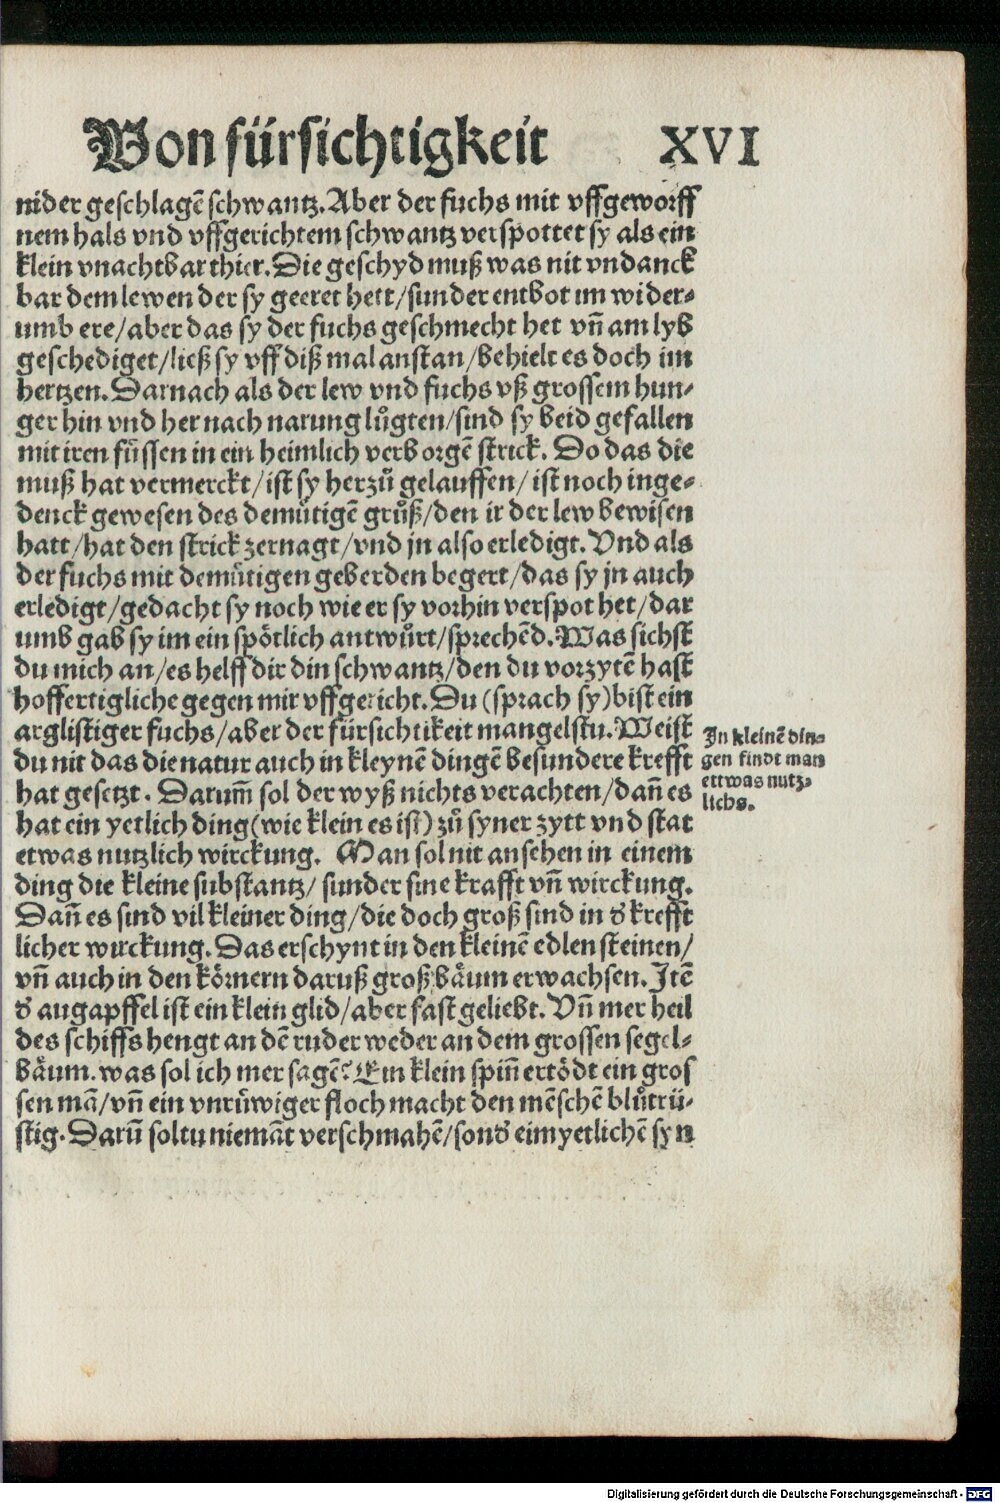 Von fürsichtigkeit XVI
nider geschlagẽ schwantz. Aber der fuchs mit vffgeworff
nem hals vnd vffgerichtem schwantz verspottet sy als ein
klein vnachtbar thier. Die geschyd muß was nit vndanck
bar dem lewen der sy geeret hett/sunder entbot im wider⸗
umb ere/aber das sy der fuchs geschmecht het vñ am lyb
geschediget/ließ sy vff diß mal anstan/behielt es doch im
hertzen. Darnach als der lew vnd fuchs vß grossem hun⸗
ger hin vnd her nach narung lůgten/sind sy beid gefallen
mit iren füssen in ein heimlich verborgẽ strick. Do das die
muß hat vermerckt/ist sy herzů gelauffen/ist noch inge⸗
denck gewesen des demütigẽ grůß/den ir der lew bewisen
hatt/hat den strick zernagt/vnd jn also erledigt. Vnd als
der fuchs mit demütigen geberden begert/das sy jn auch
erledigt/gedacht sy noch wie er sy vorhin verspot het/dar
umb gab sy im ein spötlich antwůrt/sprechẽd. Was sichst
du mich an/es helff dir din schwantz/den du vorzytẽ hast
hoffertigliche gegen mir vffgericht. Du (sprach sy) bist ein
arglistiger fuchs/aber der fürsichtikeit mangelstu. Weist
du nit das die natur auch in kleynẽ dingẽ besundere krefft
hat gesetzt. Darum̃ sol der wyß nichts verachten/dañ es
hat ein yetlich ding (wie klein es ist) zů syner zytt vnd stat
etwas nutzlich wirckung. Man sol nit ansehen in einem
ding die kleine substantz/ sunder sine krafft vñ wirckung.
Dañ es sind vil kleiner ding/die doch groß sind in d̓ krefft
licher wirckung. Das erschynt in den kleinẽ edlen steinen/
vñ auch in den körnern daruß groß bäum erwachsen. Itẽ
d̓ augapffel ist ein klein glid/aber fast geliebt. Vñ mer heil
des schiffs hengt an dẽ ruder weder an dem grossen segel⸗
bäum. was sol ich mer sagẽ? Ein klein spiñ ertödt ein gros
sen mã/vñ ein vnrüwiger floch macht den mẽschẽ blůtrü⸗
stig. Darũ soltu niemãt verschmahẽ/sond̓ eim yetlichẽ syn
In kleinẽ din⸗
gen findt man
ettwas nutz⸗
lichs.
Digitalisierung gefördert durch die Deutsche Forschungsgemeinschaft - DFG